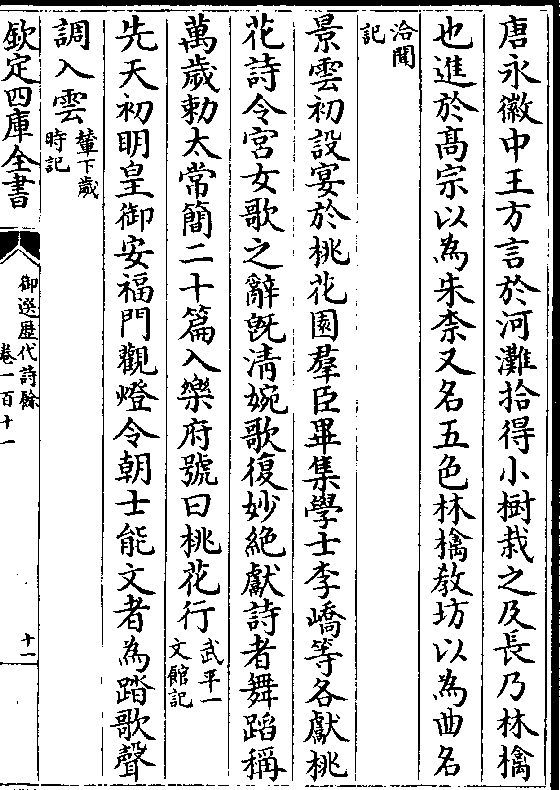 唐永徽中王方言於河灘拾得小樹栽之及長乃林檎
也進於髙宗以為朱柰又名五色林檎敎坊以為曲名
洽聞
記
景雲初設宴於桃花園羣臣畢集學士李嶠等各獻桃
花詩令宮女歌之辭旣淸婉歌復妙絶獻詩者舞蹈稱
萬歲勅太常簡二十篇入樂府號曰桃花行武平一
文館記
先天初明皇御安福門觀燈令朝士能文者為踏歌聲
調入雲輦下歲
時記
欽定四庫全書
御選歴代詩餘
卷一百十一
十一